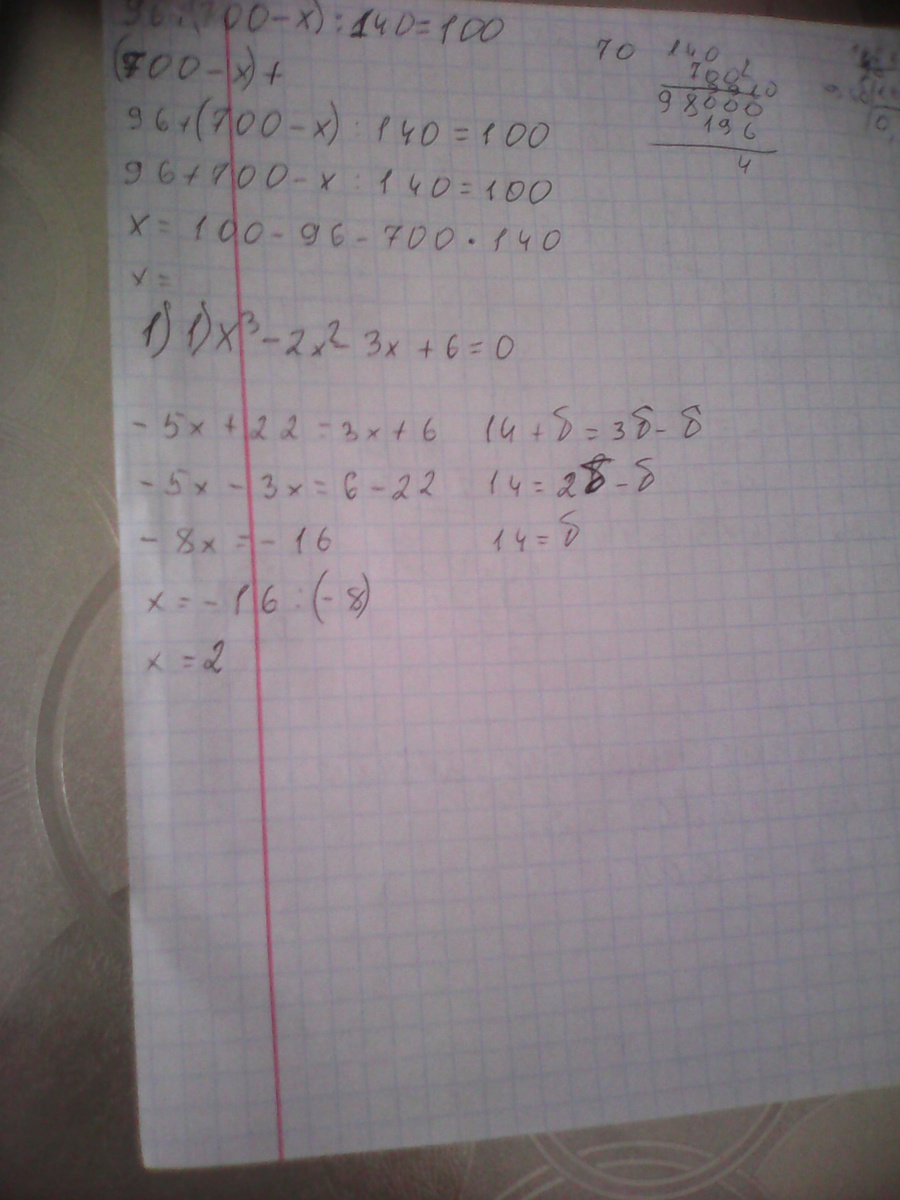 96+(700-x):140=100
(700-x)+
96+(700-x):140=100
96+700-x:140=100
x=100-96-700·140
x=
70
140
700
98000
196
4
1) 1) x³-2x²-3x+6=0
-5x+22=3x+6
-5x-3x=6-22
-8x=-16
x=-16:(-8)
x=2
14+б=3б-б
14=2б-б
14=б